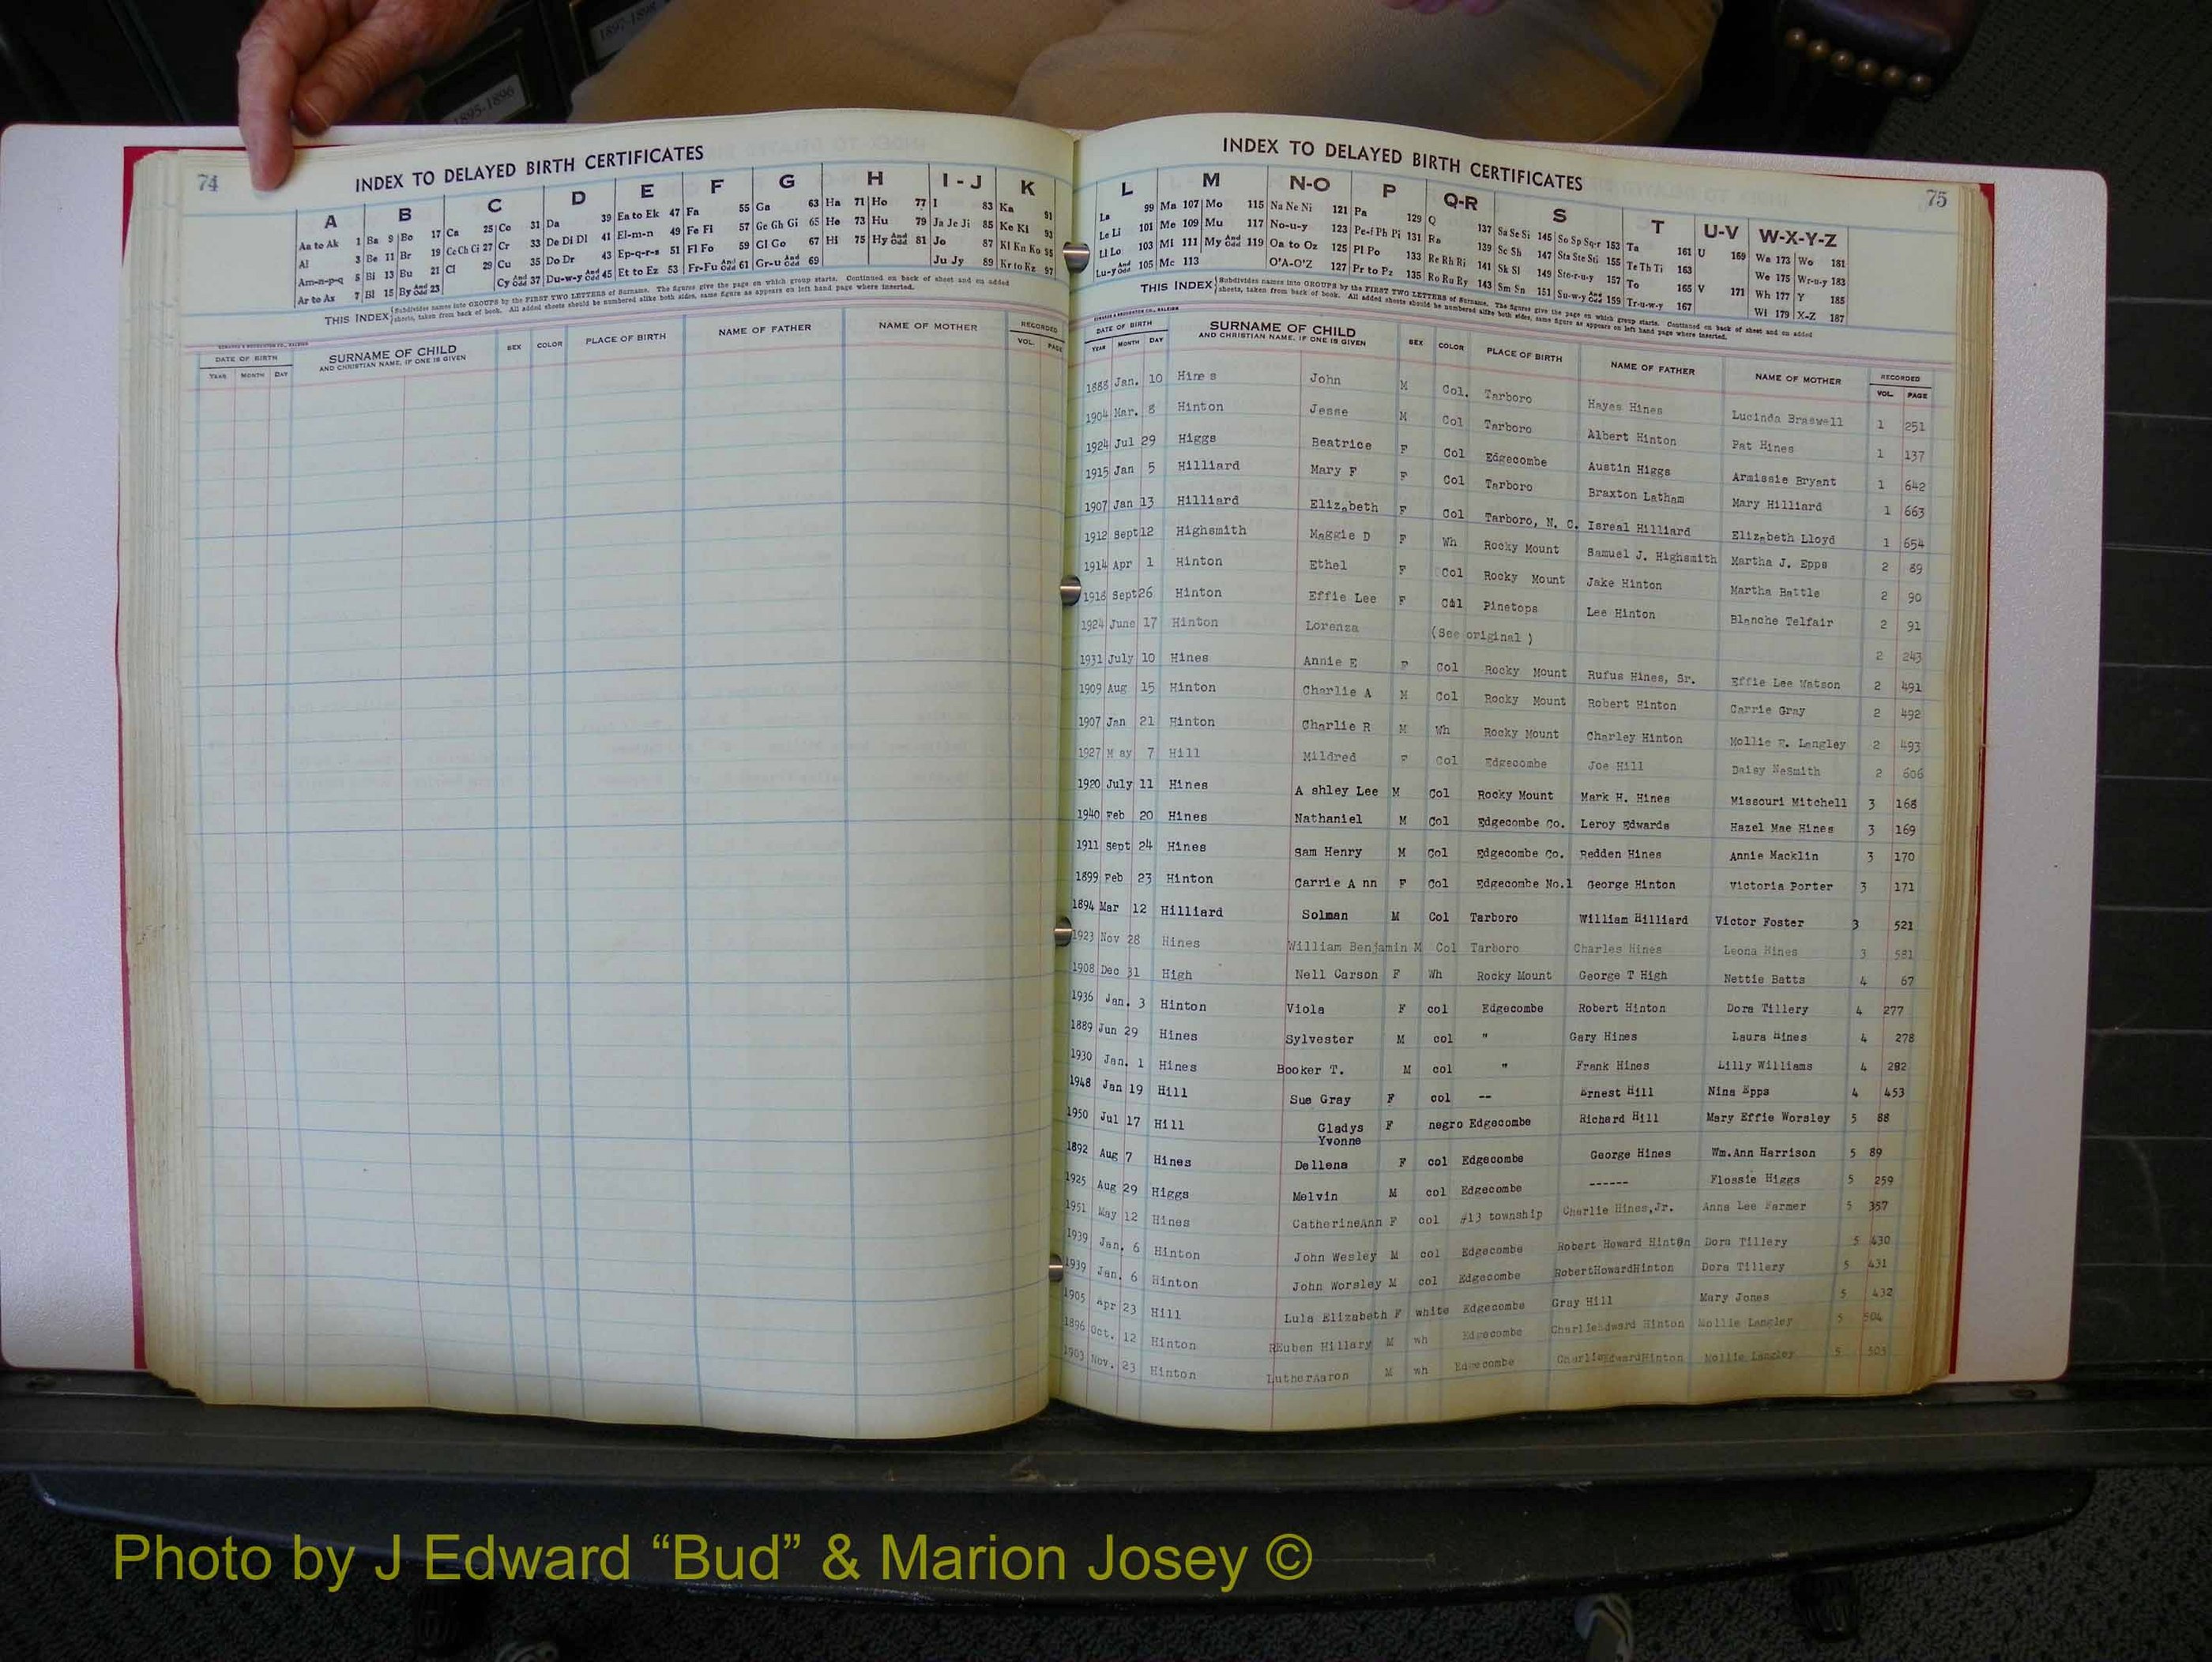 1897-1898
1895-1896
74
INDEX TO DELAYED BIRTH CERTIFICATES
A B C D E F G H I - J K
Aa to Ak 1 Ba 9 Bo 17 Ca 25 Co 31 Da 39 Ea to Ek 47 Fa 55 Ga 63 Ha 71 Ho 77 I 83 Ka 91
Al 3 Be 11 Br 19 Ce Ch Ci 27 Cr 33 De Di Dl 41 El-m-n 49 Fe Fi 57 Ge Gh Gi 65 He 73 Hu 79 Ja Je Ji 85 Ke Ki 93
Am-n-p-q 5 Bi 13 Bu 21 Cl 29 Cu 35 Do Dr 43 Ep-q-r-s 51 Fl Fo 59 Gl Go 67 Hi 75 Hy And Odd 81 Jo 87 Kl Kn Ko 95
Ar to Ax 7 Bl 15 By And Odd 23 Cy And Odd 37 Du-w-y And Odd 45 Et to Ez 53 Fr-Fu And Odd 61 Gr-u And Odd 69 Ju Jy 89 Kr to Kz 97
THIS INDEX Subdivides names into GROUPS by the FIRST TWO LETTERS of Surname. The figures give the page on which group starts. Continued on back of sheet and on added
sheets, taken from back of book. All added sheets should be numbered alike both sides, same figure as appears on left hand page where inserted.
DATE OF BIRTH SURNAME OF CHILD SEX COLOR PLACE OF BIRTH NAME OF FATHER NAME OF MOTHER RECORDED
YEAR MONTH DAY AND CHRISTIAN NAME, IF ONE IS GIVEN VOL. PAGE
75
INDEX TO DELAYED BIRTH CERTIFICATES
L M N-O P Q-R S T U-V W-X-Y-Z
La 99 Ma 107 Mo 115 Na Ne Ni 121 Pa 129 Q 137 Sa Se Si 145 So Sp Sq-r 153 Ta 161 U 169 Wa 173 Wo 181
Le Li 101 Me 109 Mu 117 No-u-y 123 Pe-f Ph Pi 131 Ra 139 Sc Sh 147 Sta Ste Sti 155 Te Th Ti 163 We 175 Wr-u-y 183
Ll Lo 103 Mi 111 My And Odd 119 Oa to Oz 125 Pl Po 133 Re Rh Ri 141 Sk Sl 149 Sto-r-u-y 157 To 165 V 171 Wh 177 Y 185
Lu-y And Odd 105 Mc 113 O'A-O'Z 127 Pr to Pz 135 Ro Ru Ry 143 Sm Sn 151 Su-w-y And Odd 159 Tr-u-w-y 167 Wi 179 X-Z 187
THIS INDEX Subdivides names into GROUPS by the FIRST TWO LETTERS of Surname. The figures give the page on which group starts. Continued on back of sheet and on added
sheets, taken from back of book. All added sheets should be numbered alike both sides, same figure as appears on left hand page where inserted.
DATE OF BIRTH SURNAME OF CHILD SEX COLOR PLACE OF BIRTH NAME OF FATHER NAME OF MOTHER RECORDED
YEAR MONTH DAY AND CHRISTIAN NAME, IF ONE IS GIVEN VOL. PAGE
1888 Jan. 10 Hines John M Col. Tarboro Hayes Hines Lucinda Braswell 1 251
1904 Mar. 8 Hinton Jesse M Col Tarboro Albert Hinton Pat Hines 1 137
1924 Jul 29 Higgs Beatrice F Col Edgecombe Austin Higgs Armissie Bryant 1 642
1915 Jan 5 Hilliard Mary F F Col Tarboro Braxton Latham Mary Hilliard 1 663
1907 Jan 13 Hilliard Elizabeth F Col Tarboro, N. C. Isreal Hilliard Elizabeth Lloyd 1 654
1912 Sept 12 Highsmith Maggie D F Wh Rocky Mount Samuel J. Highsmith Martha J. Epps 2 89
1914 Apr 1 Hinton Ethel F Col Rocky Mount Jake Hinton Martha Battle 2 90
1918 Sept 26 Hinton Effie Lee F Col Pinetops Lee Hinton Blanche Telfair 2 91
1924 June 17 Hinton Lorenza (See original ) 2 243
1931 July 10 Hines Annie E F Col Rocky Mount Rufus Hines, Sr. Effie Lee Watson 2 491
1909 Aug 15 Hinton Charlie A M Col Rocky Mount Robert Hinton Carrie Gray 2 492
1907 Jan 21 Hinton Charlie R M Wh Rocky Mount Charley Hinton Mollie E. Langley 2 493
1927 May 7 Hill Mildred F Col Edgecombe Joe Hill Daisy NeSmith 2 606
1920 July 11 Hines A shley Lee M Col Rocky Mount Mark H. Hines Missouri Mitchell 3 168
1940 Feb 20 Hines Nathaniel M Col Edgecombe Co. Leroy Edwards Hazel Mae Hines 3 169
1911 Sept 24 Hines Sam Henry M Col Edgecombe Co. Redden Hines Annie Macklin 3 170
1899 Feb 23 Hinton Carrie A nn F Col Edgecombe No.1 George Hinton Victoria Porter 3 171
1894 Mar 12 Hilliard Solman M Col Tarboro William Hilliard Victor Foster 3 521
1923 Nov 28 Hines William Benjamin M Col Tarboro Charles Hines Leona Hines 3 581
1908 Dec 31 High Nell Carson F Wh Rocky Mount George T High Nettie Batts 4 67
1936 Jan. 3 Hinton Viola F col Edgecombe Robert Hinton Dora Tillery 4 277
1889 Jun 29 Hines Sylvester M col " Gary Hines Laura Hines 4 278
1930 Jan. 1 Hines Booker T. M col " Frank Hines Lilly Williams 4 282
1948 Jan 19 Hill Sue Gray F col -- Ernest Hill Nina Epps 4 453
1950 Jul 17 Hill Gladys F negro Edgecombe Richard Hill Mary Effie Worsley 5 88
Yvonne
1892 Aug 7 Hines Dellena F col Edgecombe George Hines Wm.Ann Harrison 5 89
1925 Aug 29 Higgs Melvin M col Edgecombe ------ Flossie Higgs 5 259
1951 May 12 Hines CatherineAnn F col #13 township Charlie Hines,Jr. Anna Lee Farmer 5 357
1939 Jan. 6 Hinton John Wesley M col Edgecombe Robert Howard Hinton Dora Tillery 5 430
1939 Jan. 6 Hinton John Worsley M col Edgecombe RobertHowardHinton Dora Tillery 5 431
1905 Apr 23 Hill Lula Elizabeth F white Edgecombe Gray Hill Mary Jones 5 432
1896 Oct. 12 Hinton REuben Hillary M wh Edgecombe CharlieEdward Hinton Mollie Langley 5 504
1903 Nov. 23 Hinton LutherAaron M wh Edgecombe CharlieEdwardHinton Mollie Langley 5 505
Photo by J Edward “Bud” & Marion Josey ©